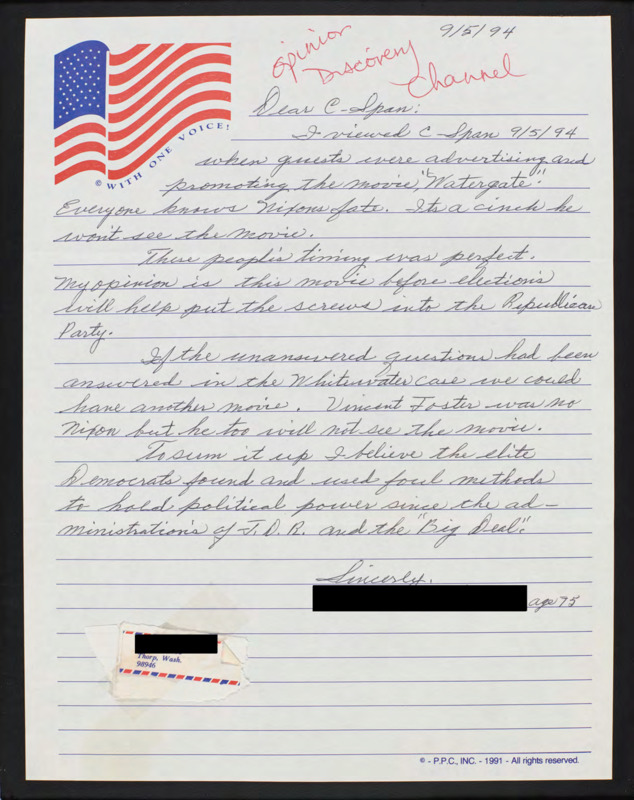 9/5/94
Opinion
Discovery
Channel
© WITH ONE VOICE!
Dear C-Span:
I viewed C Span 9/5/94
when guests were advertising and
promoting the movie, "Watergate".
Everyone knows Nixons fate. Its a cinch he
won't see the movie.
These people's timing was perfect.
My opinion is this movie before elections
will help put the screws into the Republican
Party.
If the unanswered questions had been
answered in the Whitewater case we could
have another movie. Vincent Foster was no
Nixon but he too will not see the movie.
To sum it up I believe the elite
Democrats found and used foul methods
to hold political power since the ad-
ministration's of F.D.R. and the "Big Deal".
Sincerly,
age 75
Thorp, Wash.
98946
© - P.P.C., INC. - 1991 - All rights reserved.